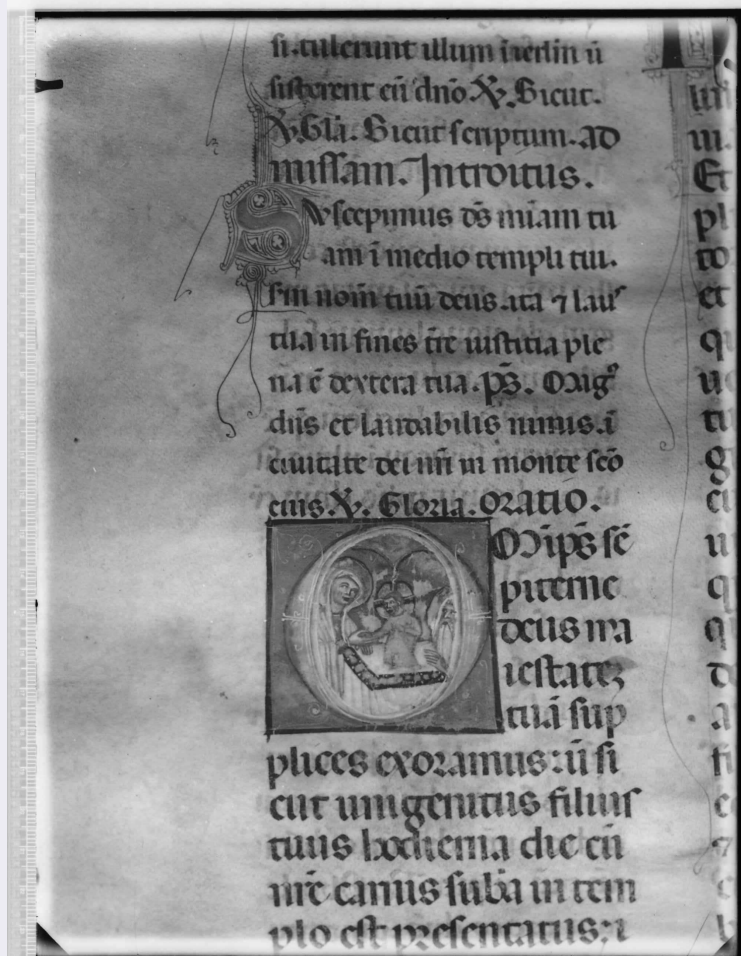 si. tulerunt illum i ierl̄m ū
sisterent eū dn̄o ℣. Sicut.
℣. Gl̄a. Sicut scriptum. ad
missam. Introitus.
Suscepimus d̄s mīam tu
am ī medio templi tui.
sm̄ nom̄ tuū deus. ita ⁊ laus
tua in fines t̄re iustitia ple
na ē dextera tua. p̄s. Mag
dn̄s et laudabilis nimis. ī
ciuitate dei nr̄i in monte sc̄o
eius. ℣. Gloria. Oratio.
Om̄ip̄s sē
piterne
deus ma
iestatēȝ
tuā sup
plices exoramus: ū si
cut unigenitus filius
tuus hodierna die cū
nr̄e carnis sub̄a in tem
plo est presentatus: i
Et
pl
to
et
q
u
tu
g
ci
u
q
q
d
a
fi
e
⁊